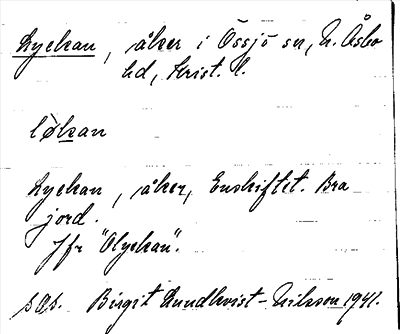 Lyckan, åker i Össjö sn, N. Åsbo
hd, Krist. l.
lø̀kan
Lyckan, åker, Enskiftet. Bra
jord.
Jfr "Olyckan".
sas. Birgit Lundkvist-Nilsson 1941.